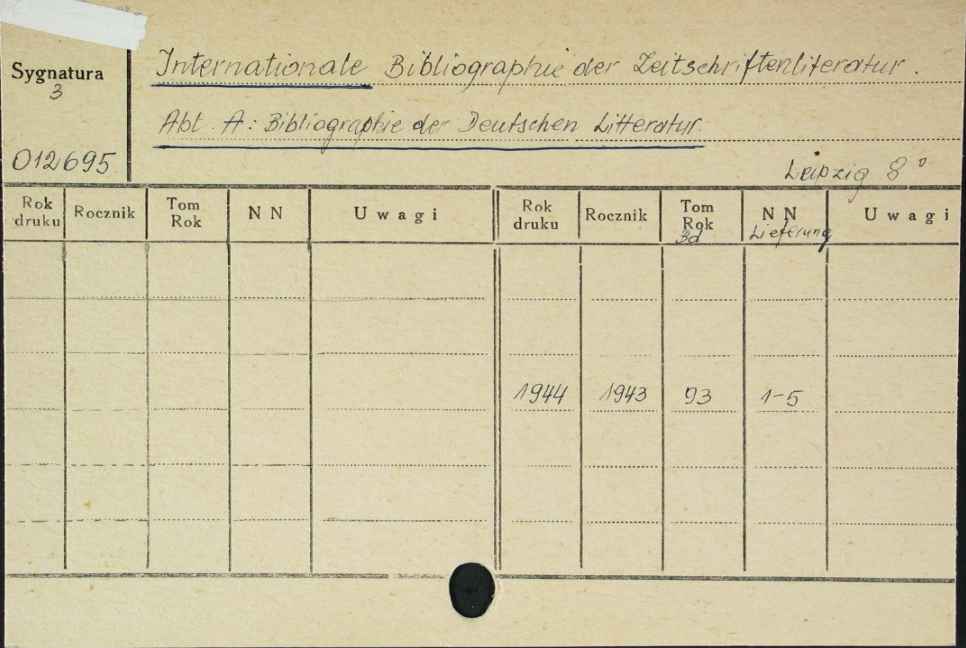 Sygnatura
3
012695
Internationale Bibliographie der Zeitschriftenliteratur.
Abt. A: Bibliographie der Deutschen Litteratur
Leipzig 8°
Rok druku Rocznik Tom Rok N N Uwagi Rok druku Rocznik Tom Rok N N Uwagi
Bd Lieferung
1944 1943 93 1-5